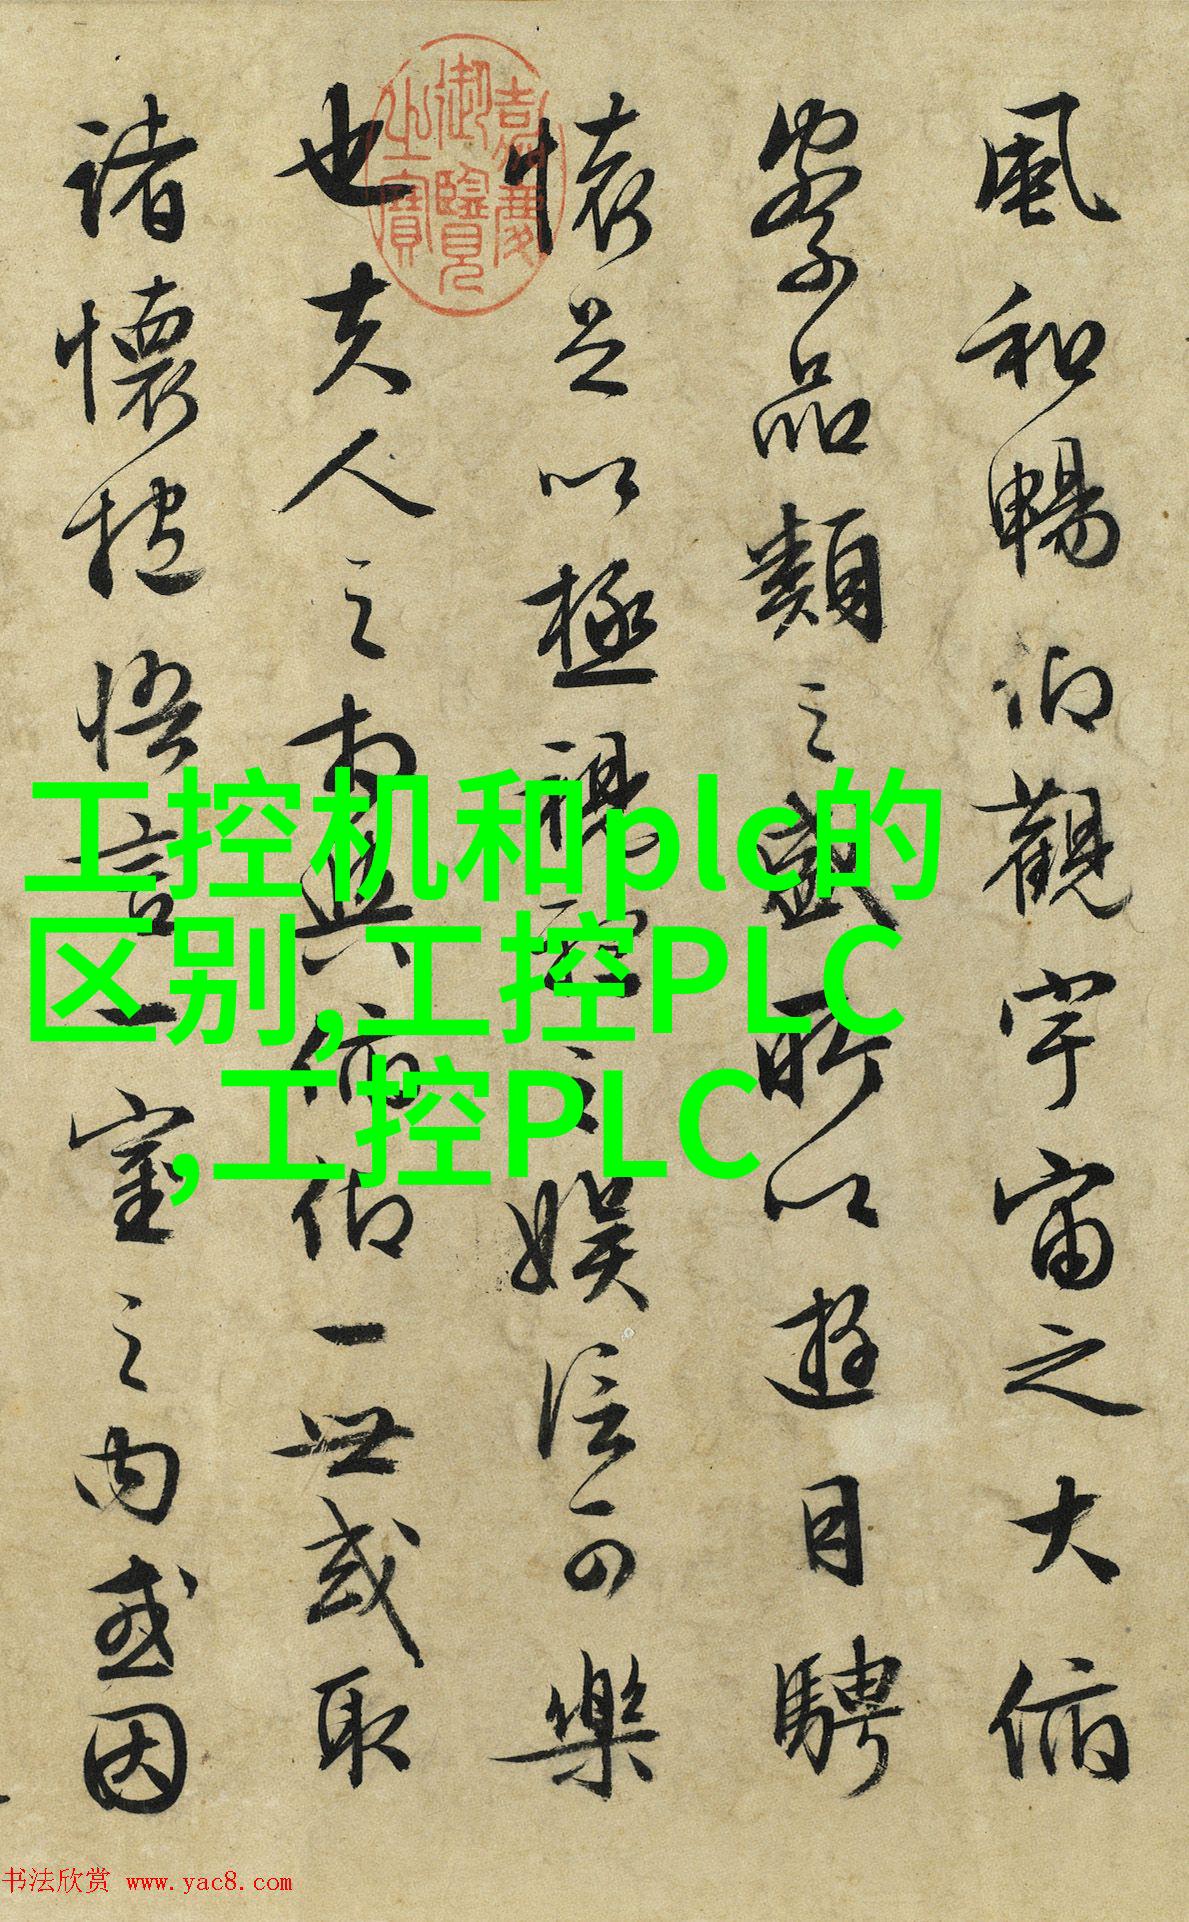 風和暢仰觀宇宙之大俯
察品類之盛所以遊目騁
懷足以極視聽之娛信可樂
也夫人之相與俯仰一世或取
諸懷抱悟言一室之內或因
嘉慶
御覽
之寶
工控机和plc的
区别,工控PLC
,工控PLC
书法欣赏 www.yac8.com